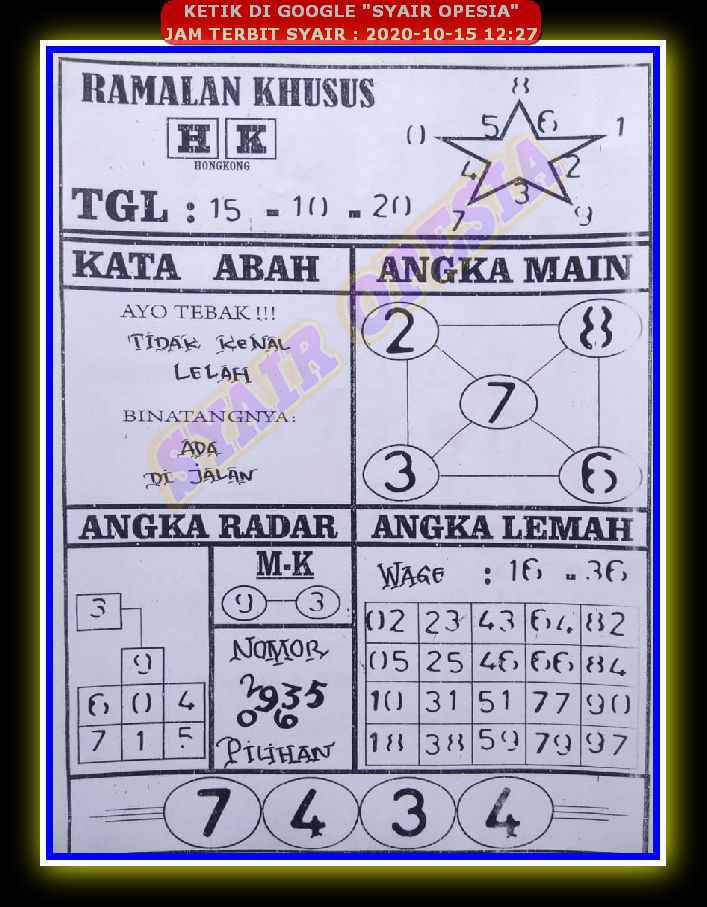 KETIK DI GOOGLE "SYAIR OPESIA"
JAM TERBIT SYAIR : 2020-10-15 12:27
RAMALAN KHUSUS
H K
HONGKONG
TGL : 15 - 10 - 20
8
0 5 6 1
4 2
3
7 9
KATA ABAH
AYO TEBAK !!!
TIDAK KENAL
LELAH
BINATANGNYA:
ADA
DI JALAN
ANGKA MAIN
2 8
7
3 6
SYAIR OPESIA
ANGKA RADAR
3
9
6 0 4
7 1 5
M-K
9 3
NOMOR
2935
0 6
PILIHAN
ANGKA LEMAH
WAGE : 16 - 36
02 23 43 64 82
05 25 46 66 84
10 31 51 77 90
18 38 59 79 97
7 4 3 4